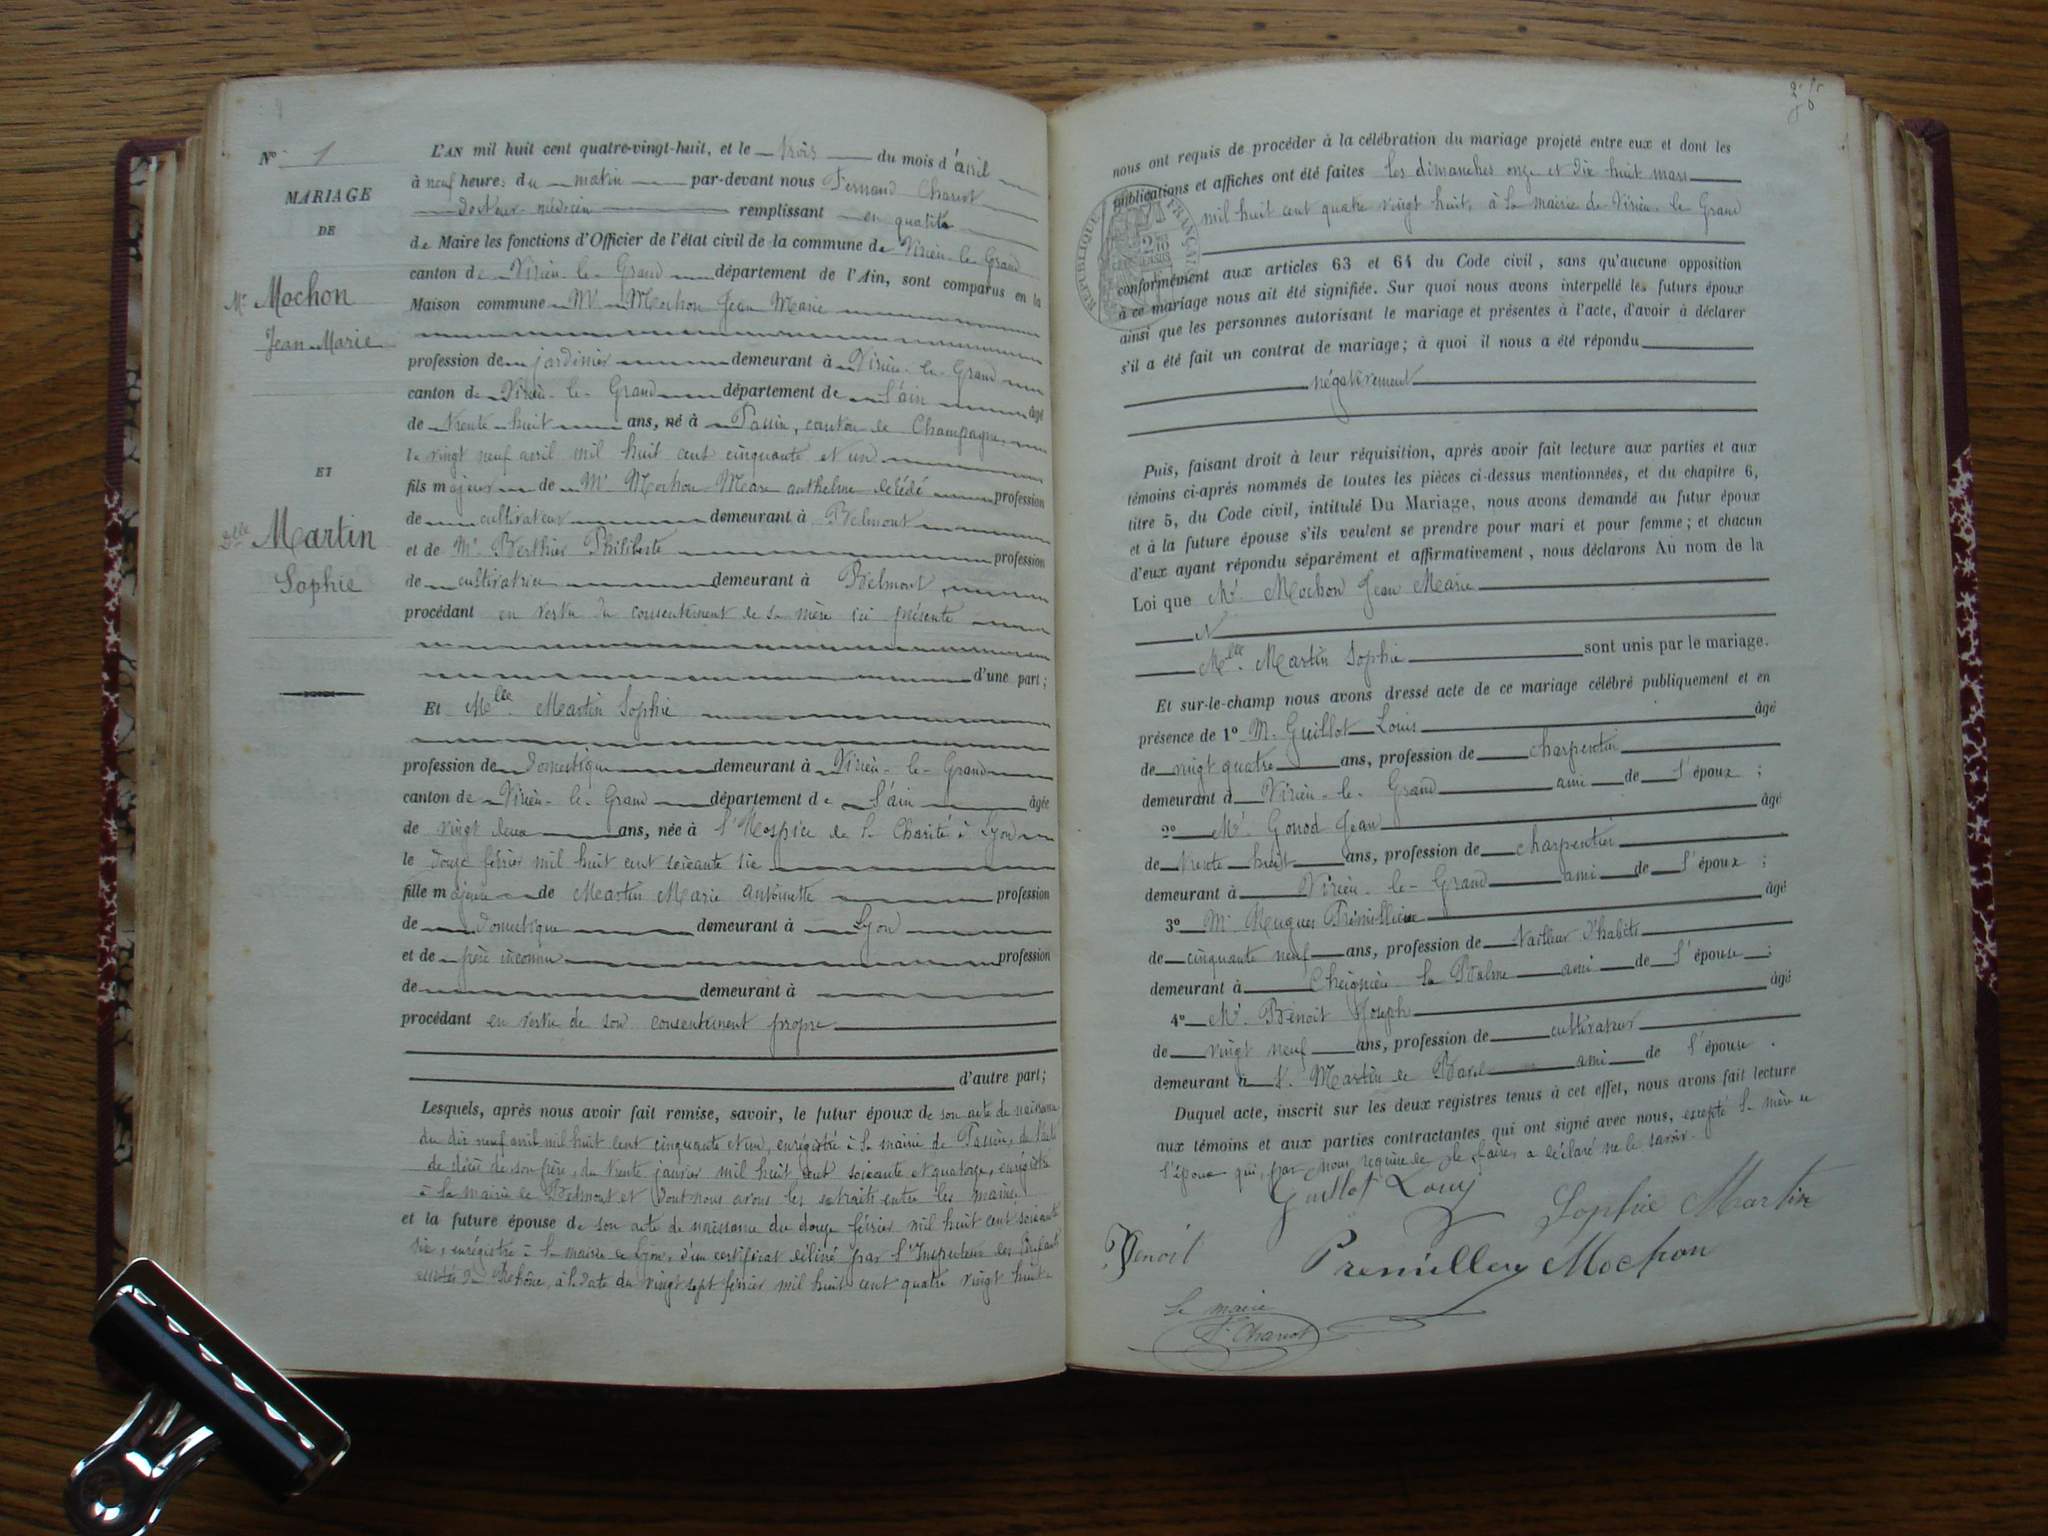 N° 1
MARIAGE
DE
Mr Mochon
Jean-Marie
ET
Delle Martin
Sophie
L'AN mil huit cent quatre-vingt-huit, et le trois du mois d'avril
à neuf heures du matin par-devant nous Fernand Charvot
docteur médecin remplissant en qualité
de Maire les fonctions d'Officier de l'état civil de la commune de Virieu-le-Grand
canton de Virieu-le-Grand département de l'Ain, sont comparus en la
Maison commune Mr Mochon Jean Marie
profession de jardinier demeurant à Virieu-le-Grand
canton de Virieu-le-Grand département de l'ain âgé
de trente-huit ans, né à Passin, canton de Champagne,
le vingt neuf avril mil huit cent cinquante et un
fils majeur de Mr Mochon Marc anthelme décédé profession
de cultivateur demeurant à Belmont
et de Mr Berthier Philiberte profession
de cultivatrice demeurant à Belmont,
procédant en vertu du consentement de sa mère ici présente
d'une part;
Et Melle Martin Sophie
profession de domestique demeurant à Virieu-le-Grand
canton de Virieu-le-Grand département de l'ain âgée
de vingt deux ans, née à l'Hospice de la Charité à Lyon
le douze février mil huit cent soixante six
fille majeure de Martin Marie antoinette profession
de domestique demeurant à Lyon
et de père inconnu profession
de demeurant à
procédant en vertu de son consentement propre
d'autre part;
Lesquels, après nous avoir fait remise, savoir, le futur époux de son acte de naissance
du dix neuf avril mil huit cent cinquante et un, enregistré à la mairie de Passin, de l'acte
de décès de son père, du trente janvier mil huit cent soixante et quatorze, enregistré
à la mairie de Belmont et dont nous avons les extraits entre les mains,
et la future épouse de son acte de naissance du douze février mil huit cent soixante
six, enregistré à la mairie de Lyon, d'un certificat délivré par l'Inspecteur des Enfants
du Rhône, à la date du vingt sept février mil huit cent quatre vingt huit
nous ont requis de procéder à la célébration du mariage projeté entre eux et dont les
publications et affiches ont été faites les dimanches onze et dix huit mars
mil huit cent quatre vingt huit, à la mairie de Virieu-le-Grand
RÉPUBLIQUE FRANÇAISE
conformément aux articles 63 et 64 du Code civil, sans qu'aucune opposition
à ce mariage nous ait été signifiée. Sur quoi nous avons interpellé les futurs époux
ainsi que les personnes autorisant le mariage et présentes à l'acte, d'avoir à déclarer
s'il a été fait un contrat de mariage; à quoi il nous a été répondu
négativement
Puis, faisant droit à leur réquisition, après avoir fait lecture aux parties et aux
témoins ci-après nommés de toutes les pièces ci-dessus mentionnées, et du chapitre 6,
titre 5, du Code civil, intitulé Du Mariage, nous avons demandé au futur époux
et à la future épouse s'ils veulent se prendre pour mari et pour femme; et chacun
d'eux ayant répondu séparément et affirmativement, nous déclarons Au nom de la
Loi que Mr. Mochon Jean Marie
Melle Martin Sophie sont unis par le mariage.
Et sur-le-champ nous avons dressé acte de ce mariage célébré publiquement et en
présence de 1° M. Guillot Louis âgé
de vingt quatre ans, profession de charpentier
demeurant à Virieu-le-Grand ami de l'époux;
2° Mr Gonod Jean âgé
de trente huit ans, profession de charpentier
demeurant à Virieu-le-Grand ami de l'époux;
3° Mr Hugues Prémillieu âgé
de cinquante neuf ans, profession de tailleur d'habits
demeurant à Cheignieu la Balme ami de l'épouse;
4° Mr. Benoit Joseph âgé
de vingt neuf ans, profession de cultivateur
demeurant à St. Martin de Bavel ami de l'épouse.
Duquel acte, inscrit sur les deux registres tenus à cet effet, nous avons fait lecture
aux témoins et aux parties contractantes qui ont signé avec nous, excepté la mère de
l'époux qui, par nous requise de le faire, a déclaré ne le savoir.
Guillot Louis
Sophie Martin
Benoit
Premillieu Mochon
Le maire
F. Charvot